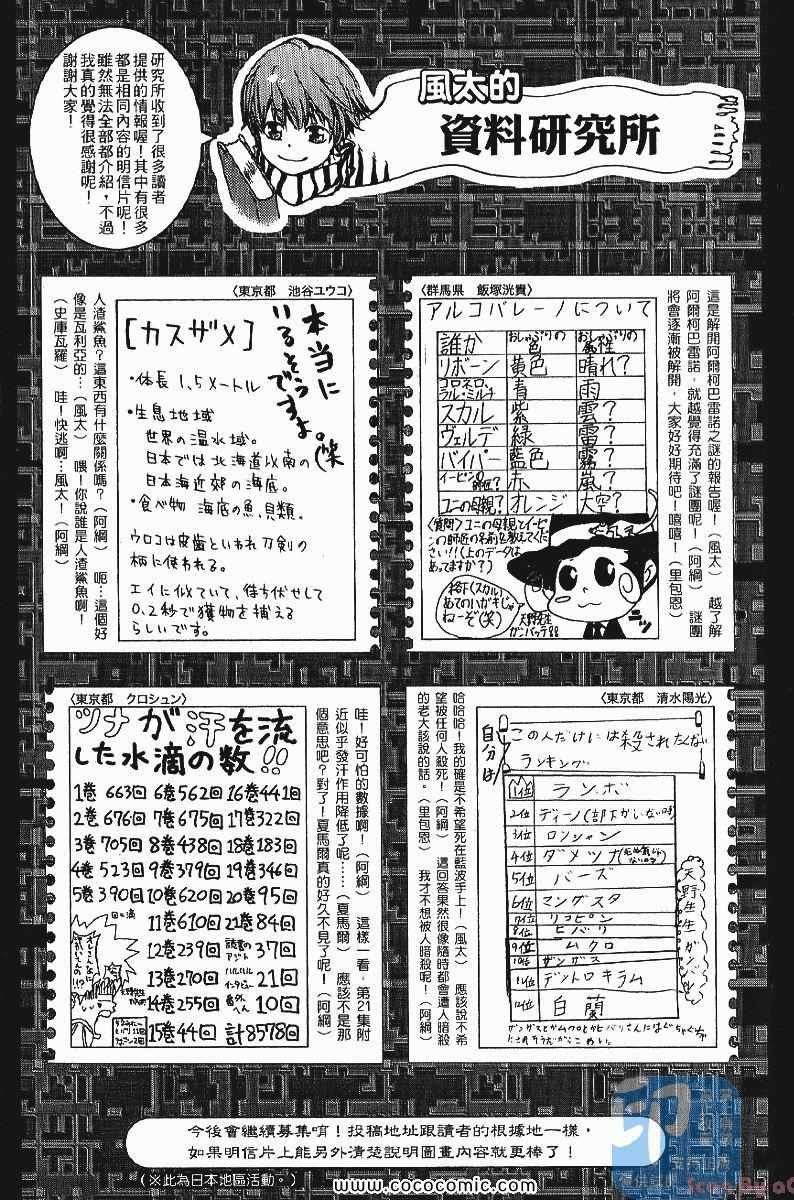 風太的
資料研究所
研究所收到了很多讀者
提供的情報喔！其中有很多
都是相同內容的明信片呢！
雖然無法全部都介紹，不過
我真的覺得很感謝呢！
謝謝大家！
〈群馬県　飯塚洸貴〉
アルコバレーノについて
誰か おしゃぶりの色 おしゃぶりの属性
リボーン 黄色 晴れ？
コロネロ、ラル・ミルチ 青 雨
スカル 紫 雲？
ヴェルデ 緑 雷？
バイパー 藍色 霧？
イーピンの師匠？ 赤 嵐？
ユニの母親？ オレンジ 大空？
〈質問〉ユニの母親とイーピ
ンの師匠の名前を教えてくだ
さい！！（上のデータは
あってますか？）
あてのハガキじゃ
ねーぞ（笑）
天野先生
ガンバッテ
這是解開阿爾柯巴雷諾之謎的報告喔！（風太）　越了解
阿爾柯巴雷諾，就越覺得充滿了謎團呢！（阿綱）　謎團
將會逐漸被解開，大家好好期待吧！嘻嘻！（里包恩）
〈東京都　池谷ユウコ〉
本当に
いるそうですよ。（笑
[カスザメ]
・体長 1,5メートル
・生息地域
世界の温水域。
日本では北海道以南の
日本海近郊の海底。
・食べ物 海底の魚、貝類。
ウロコは皮歯といわれ刀剣の
柄に使われる。
エイに似ていて、待ち伏せして
0.2秒で獲物を捕える
らしいです。
人渣鯊魚？這東西有什麼關係嗎？（阿綱）　呃…這個好
像是瓦利亞的…（風太）　喂！你說誰是人渣鯊魚啊！
（史庫瓦羅）　哇！快逃啊…風太！（阿綱）
〈東京都　清水陽光〉
自分は
この人だけには殺されたくない
ランキング
1位 ランボ
2位 ディーノ（部下がいない時）
3位 ロンシャン
4位 ダメツナ
5位 バーズ
6位 マングスタ
7位 リコピン
8位 ヒバリ
9位 ムクロ
10位 ザンザス
11位 デットロキラム
12位 白蘭
天野先生ガンバレ
哈哈哈！我的確是不希望死在藍波手上！（風太）　應該說不希
望被任何人殺死！（阿綱）　這回答果然很像隨時都會遭人暗殺
的老大該說的話。（里包恩）　我才不想被人暗殺呢！（阿綱）
〈東京都　クロシュン〉
ツナが汗を流
した水滴の数！！
1巻 663回 6巻 562回 16巻 441回
2巻 676回 7巻 675回 17巻 322回
3巻 705回 8巻 438回 18巻 183回
4巻 523回 9巻 379回 19巻 346回
5巻 390回 10巻 620回 20巻 95回
11巻 610回 21巻 84回
12巻 239回 読者のアジト 37回
13巻 270回 ハルハルインタビュー 21回
14巻 255回 番外へん 10回
15巻 44回 計 8578回
哇！好可怕的數據啊！（阿綱）　這樣一看，第21集附
近似乎發汗作用降低了呢……（夏馬爾）　應該不是那
個意思吧？對了！夏馬爾真的好久不見了呢！（阿綱）
今後會繼續募集唷！投稿地址跟讀者的根據地一樣，
如果明信片上能另外清楚說明圖畫內容就更棒了！
（※此為日本地區活動。）
www.cococomic.com